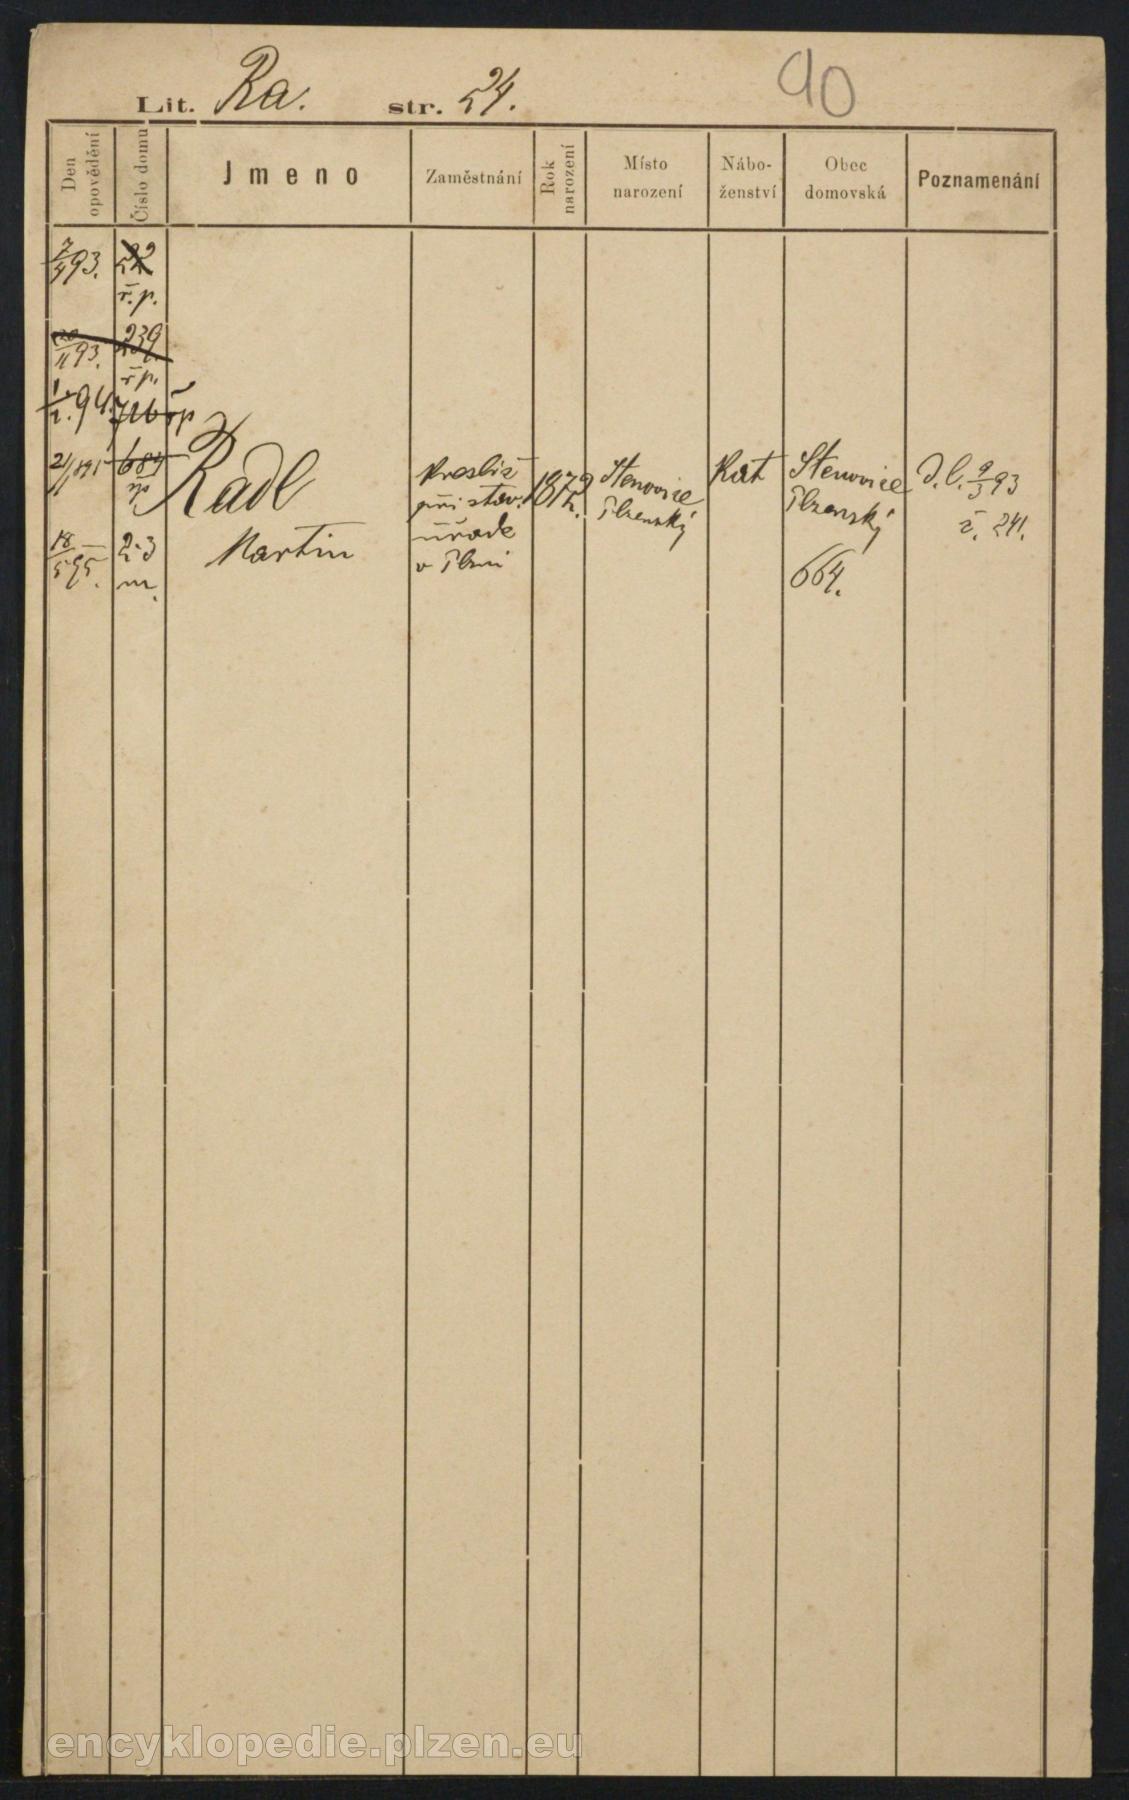 90
Lit. Ra. str. 24.
Den opovědění
Číslo domu
Jmeno
Zaměstnání
Rok narození
Místo narození
Nábo-ženství
Obec domovská
Poznamenání
7/4 93. 22
ř. p.
20/11 93. 239.
ř p.
1/2. 94. 726 řp
21/1 895 684
řp
Radl
Martin
Kreslič
při stav.
úřadě
v Plzni
1872
Štenovice
Plzenský
Kat
Štenovice
Plzenský
664.
D. l. 9/3 93
č. 241.
18/5 95. 23
m.
encyklopedie.plzen.eu